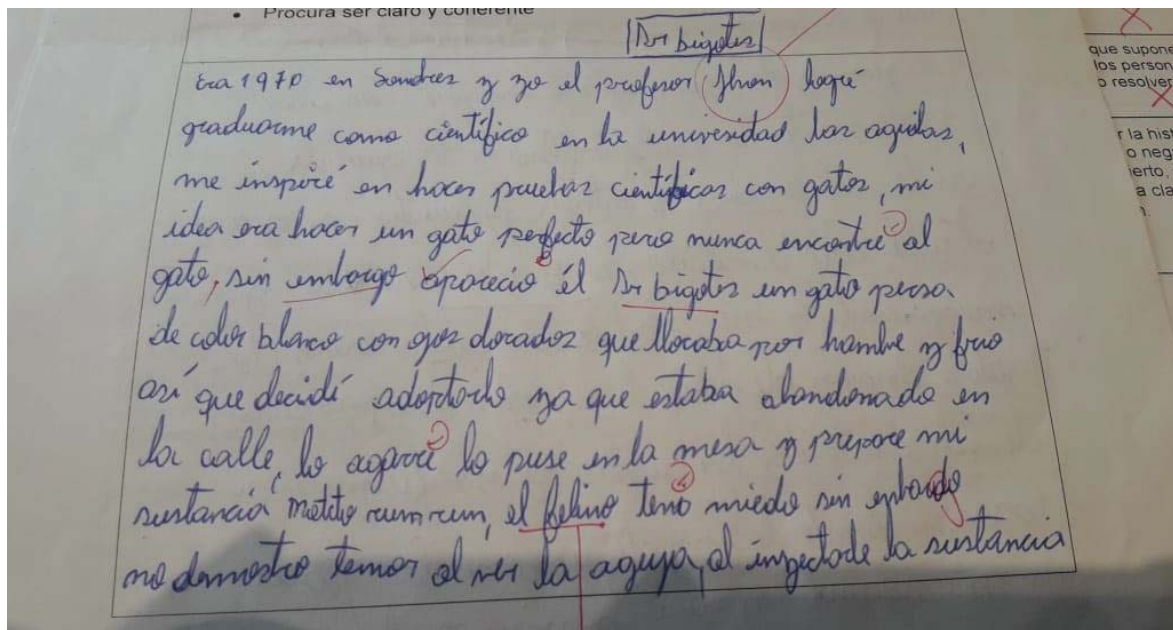 • Procura ser claro y coherente
Dr bigotes
Era 1970 en Londres y yo el profesor Jhon logré
graduarme como científico en la univesidad las aguilas,
me inspiré en hacer pruebas científicas con gatos, mi
idea era hacer un gato perfecto pero nunca encontre al
gato, sin embargo aparecio él Dr bigotes un gato persa
de color blanco con ojos dorados que lloraba por hambre y frio
así que decidí adoptarlo ya que estaba abandonado en
la calle, lo agarré lo puse en la mesa y prepare mi
sustancia rum rum, el felino tenia miedo sin enbargo
no demostro temor al ver la aguja, al inyectarle la sustancia
que supone
los person
o resolver
r la his
o neg
ierto.
a cla